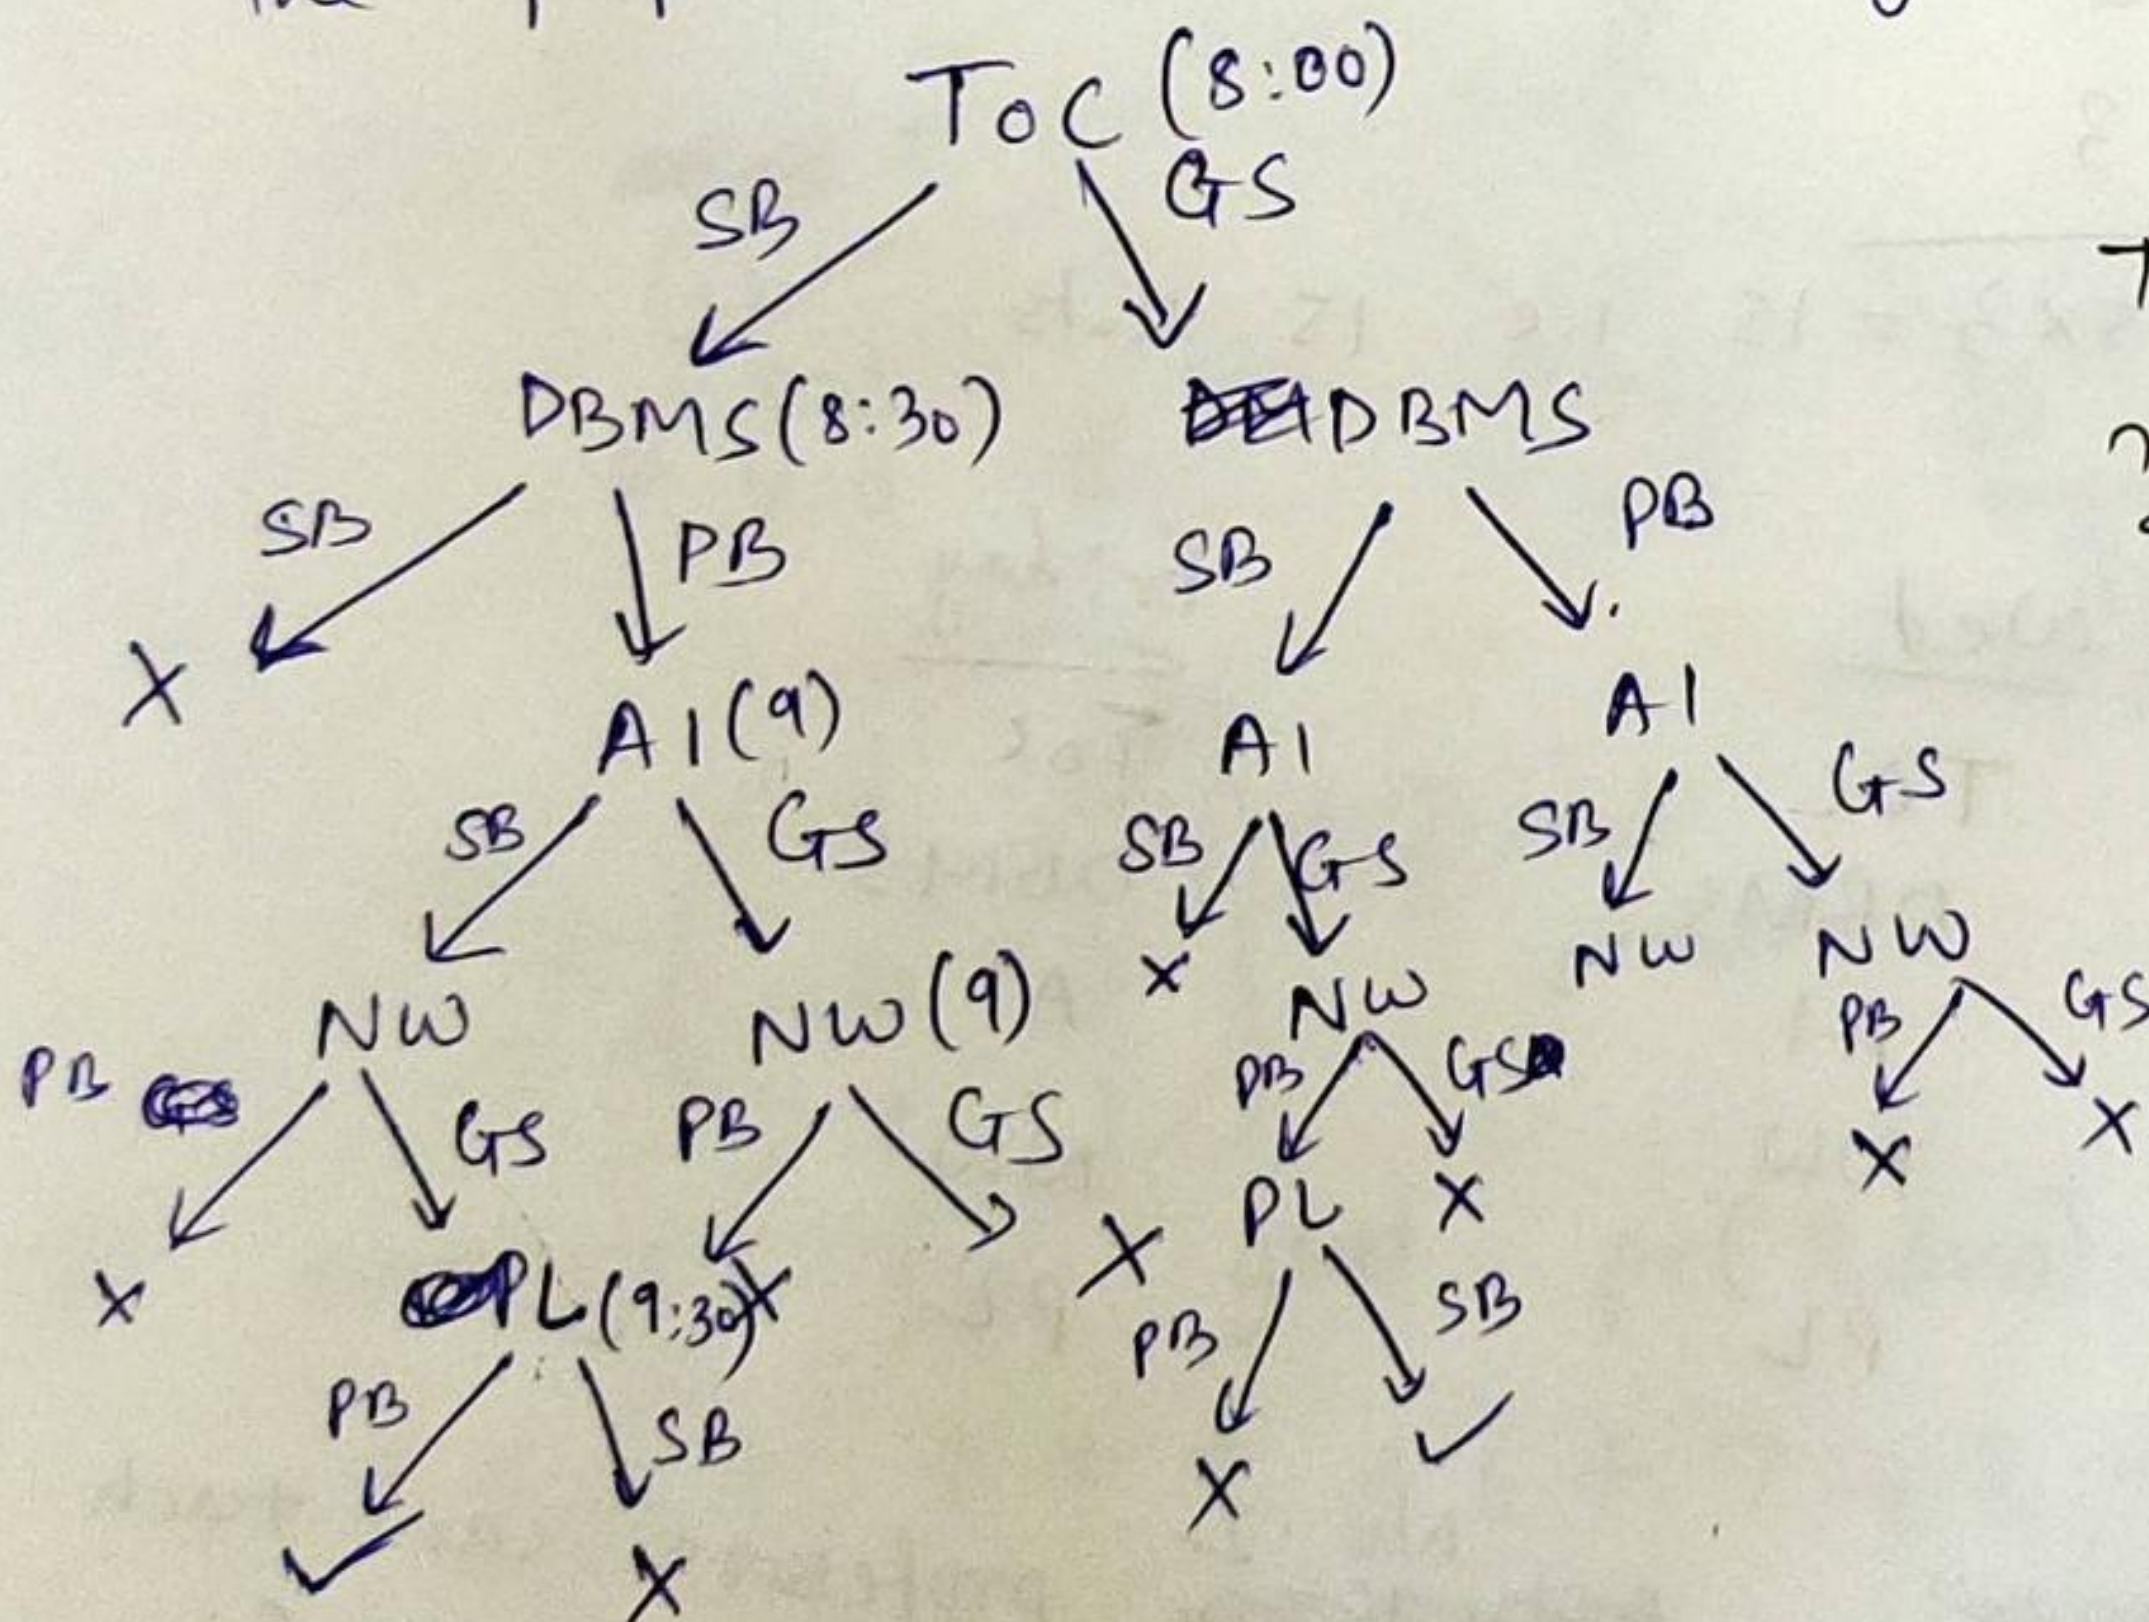 ToC (8:00)
SB GS
DBMS(8:30) DBMS
SB PB SB PB
X AI(9) AI AI
SB GS SB GS SB GS
X NW NW
NW NW(9) NW PB GS
PB GS PB GS PB GS X X
X PL(9:30) X X PL X
PB SB PB SB
✓ X X ✓